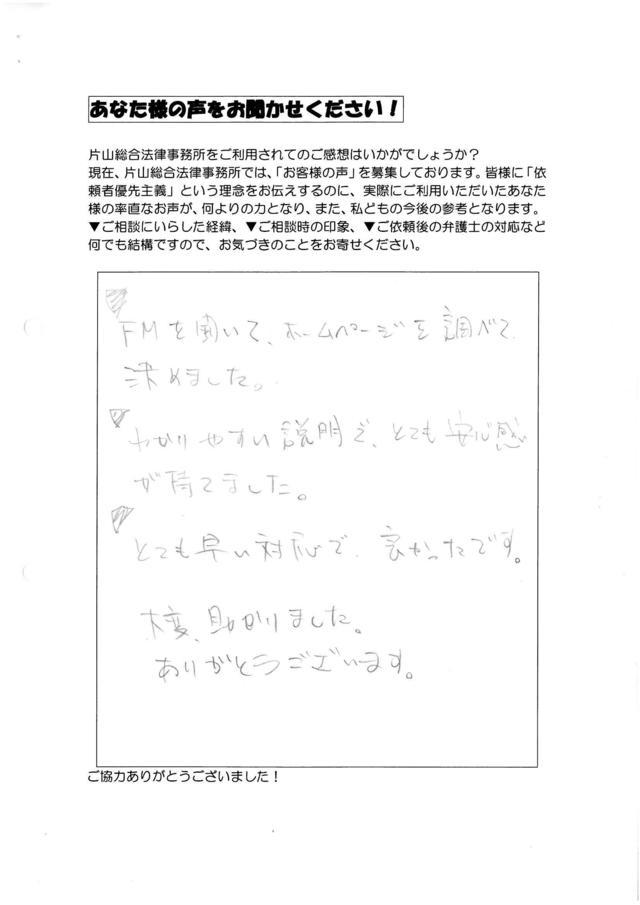 あなた様の声をお聞かせください！
片山総合法律事務所をご利用されてのご感想はいかがでしょうか？
現在、片山総合法律事務所では、「お客様の声」を募集しております。皆様に「依
頼者優先主義」という理念をお伝えするのに、実際にご利用いただいたあなた
様の率直なお声が、何よりの力となり、また、私どもの今後の参考となります。
▼ご相談にいらした経緯、▼ご相談時の印象、▼ご依頼後の弁護士の対応など
何でも結構ですので、お気づきのことをお寄せください。
▼
FMを聞いて、ホームページを調べて
決めました。
▼
わかりやすい説明で、とても安心感
が持てました。
▼
とても早い対応で、良かったです。
大変、助かりました。
ありがとうございます。
ご協力ありがとうございました！